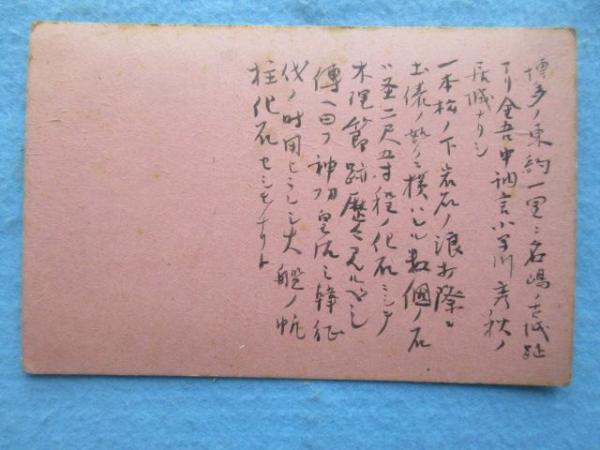 博多ノ東約一里ニ名嶋ノ古城趾
アリ金吾中納言小早川秀秋ノ
居城ナリシ
一本松ノ下岩石ノ浪打際ニ
土俵ノ如ク横ハレル数個ノ石
ハ圣二尺五寸程ノ化石ニシテ
木理節跡歴々見ルベシ
傳ヘ曰フ神功皇后三韓征
伐ノ時用ヒラレシ大艦ノ帆
柱化石セシモノナリト